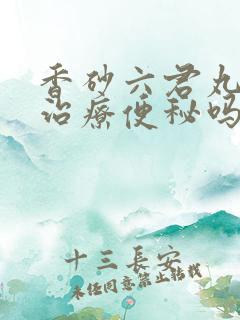 香砂六君丸
治療便秘吗
十三長安
未经同意禁止转载